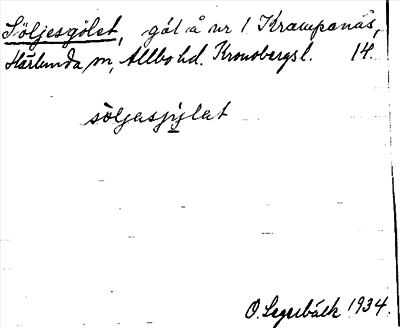 Söljesgölet, göl å nr 1 Krampanäs,
Härlunda sn, Allbo hd. Kronobergs l. 14.
söljasjylat
O. Segerbäck 1934.